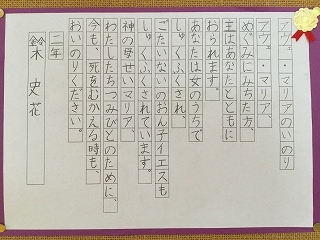 アヴェ・マリアのいのり
アヴェ・マリア、
めぐみにみちた方、
主はあなたとともに
おられます。
あなたは女のうちで
しゅくふくされ、
ごたいないのおん子イエスも
しゅくふくされています。
神の母せいマリア、
わたしたちつみびとのために、
今も、死をむかえる時も、
おいのりください。
二年
鈴木 史花